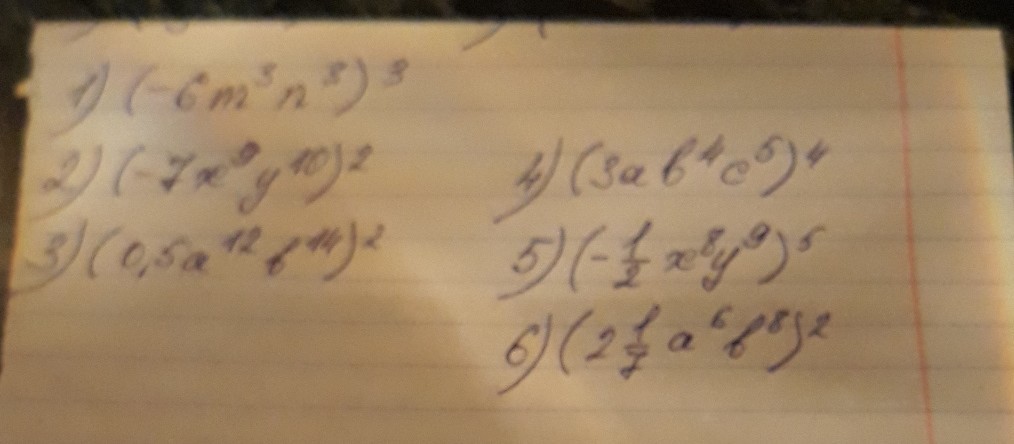 1) (-6m³n⁸)³
2) (-7x⁹y¹⁰)²
3) (0,5a¹²b¹⁴)²
4) (3ab⁴c⁵)⁴
5) (-1/2 x⁸y⁹)⁵
6) (2 1/7 a⁶b⁸)²